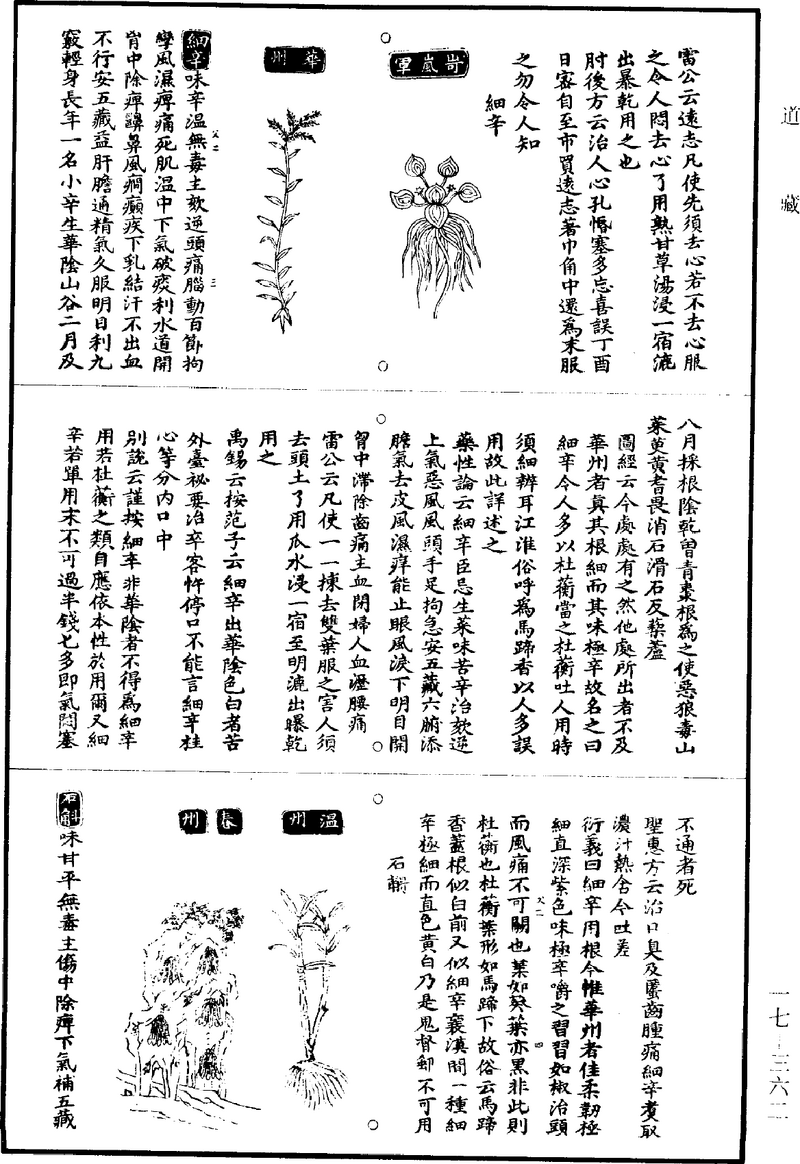 道藏
雷公云遠志凡使先須去心若不去心服
之令人悶去心了用熟甘草湯浸一宿漉
出暴乾用之也
肘後方云治人心孔惛塞多忘喜誤丁酉
日密自至市買遠志著巾角中還爲末服
之勿令人知
細辛
岢嵐軍
華州
細辛味辛溫無毒主欬逆頭痛腦動百節拘
攣風濕痺痛死肌溫中下氣破痰利水道開
胷中除痺齆鼻風癇癲疾下乳結汗不出血
不行安五藏益肝膽通精氣久服明目利九
竅輕身長年一名小辛生華陰山谷二月及
八月採根陰乾曾青棗根爲之使惡狼毒山
茱萸黃耆畏消石滑石反藜蘆
圖經云今處處有之然他處所出者不及
華州者真其根細而其味極辛故名之曰
細辛今人多以杜蘅當之杜蘅吐人用時
須細辨耳江淮俗呼爲馬蹄香以人多誤
用故此詳述之
藥性論云細辛臣忌生菜味苦辛治欬逆
上氣惡風風頭手足拘急安五藏六腑添
膽氣去皮風濕痒能止眼風淚下明目開
胷中滯除齒痛主血閉婦人血瀝腰痛
雷公云凡使一一揀去雙葉服之害人須
去頭土了用瓜水浸一宿至明漉出曝乾
用之
禹錫云按范子云細辛出華陰色白者苦
外臺祕要治卒客忤停口不能言細辛桂
心等分內口中
別說云謹按細辛非華陰者不得爲細辛
用若杜蘅之類自應依本性於用爾又細
辛若單用末不可過半錢匕多即氣悶塞
不通者死
聖惠方云治口臭及䘌齒腫痛細辛煑取
濃汁熱含冷吐差
衍義曰細辛用根今惟華州者佳柔韌極
細直深紫色味極辛嚼之習習如椒治頭
而風痛不可闕也葉如葵葉赤黑非此則
杜蘅也杜蘅葉形如馬蹄下故俗云馬蹄
香蓋根似白前又似細辛襄漢間一種細
辛極細而直色黃白乃是鬼督郵不可用
石斛
溫州
春州
石斛味甘平無毒主傷中除痺下氣補五藏
一七—三六二